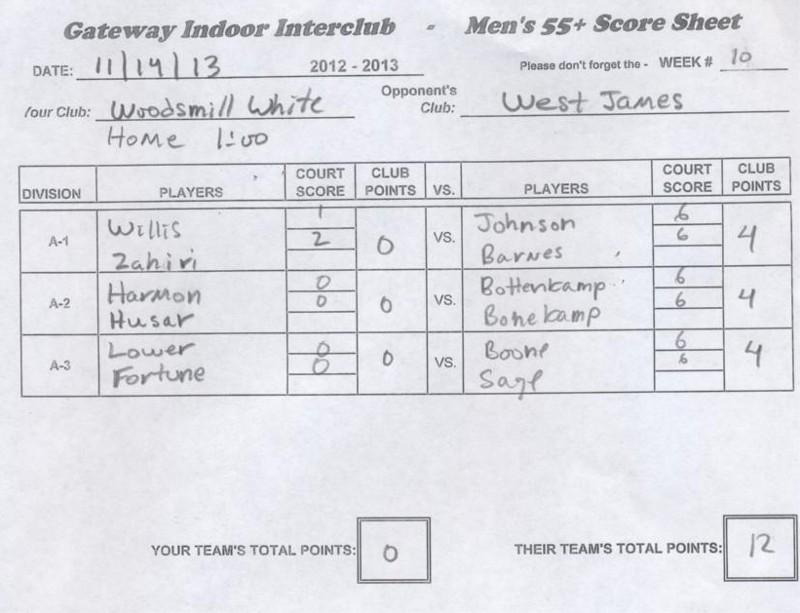 Gateway Indoor Interclub - Men's 55+ Score Sheet
DATE: 11/14/13 2012 - 2013 Please don't forget the - WEEK # 10
Your Club: Woodsmill White Opponent's Club: West James
Home 1:00
DIVISION PLAYERS COURT SCORE CLUB POINTS VS. PLAYERS COURT SCORE CLUB POINTS
A-1 Willis 1 0 VS. Johnson 6 4
Zahiri 2 Barnes 6
A-2 Harmon 0 0 VS. Bottenkamp 6 4
Husar 0 Bohekamp 6
A-3 Lower 0 0 VS. Boone 6 4
Fortune 0 Sage 6
YOUR TEAM'S TOTAL POINTS: 0 THEIR TEAM'S TOTAL POINTS: 12